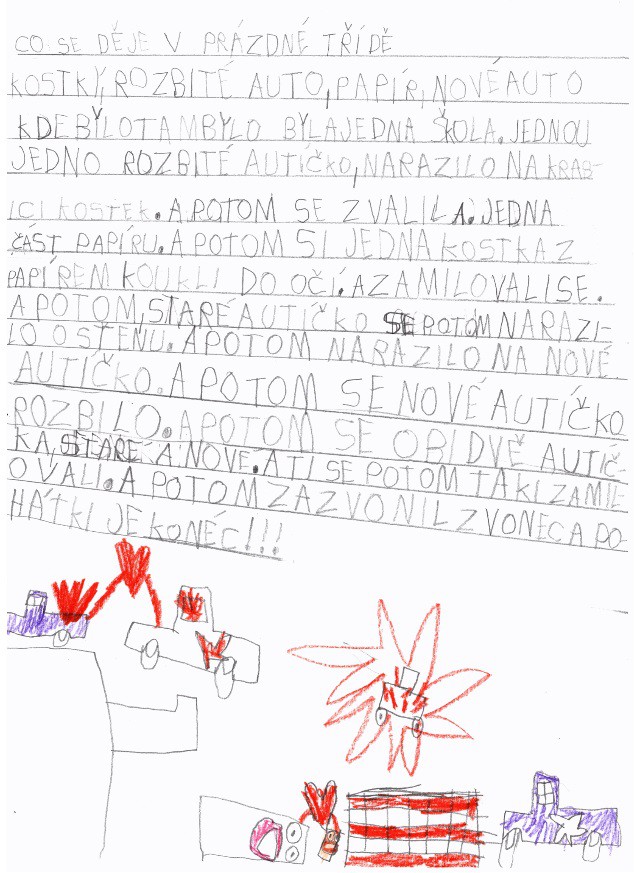 CO SE DĚJE V PRÁZDNÉ TŘÍDĚ
KOSTKY, ROZBITÉ AUTO, PAPÍR, NOVÉ AUTO
KDEBYLOTAMBYLO BYLAJEDNA ŠKOLA. JEDNOU
JEDNO ROZBITÉ AUTÍČKO, NARAZILO NA KRAB-
ICI KOSTEK. A POTOM SE ZVALILA. JEDNA
ČÁST PAPÍRU. A POTOM SI JEDNA KOSTKA Z
PAPÍREM KOUKLI DO OČÍ. A ZAMILOVALI SE.
A POTOM, STARÉ AUTÍČKO SE POTOM NARAZI-
LO O STĚNU. A POTOM NARAZILO NA NOVÉ
AUTÍČKO. A POTOM SE NOVÉ AUTÍČKO
ROZBILO. A POTOM SE OBIDVĚ AUTÍČ-
KA, STARE A NOVE. A TI SE POTOM TAKI ZAMIL-
OVALI. A POTOM ZAZVONIL ZVONEC A PO-
HÁTKI JE KONÉC!!!